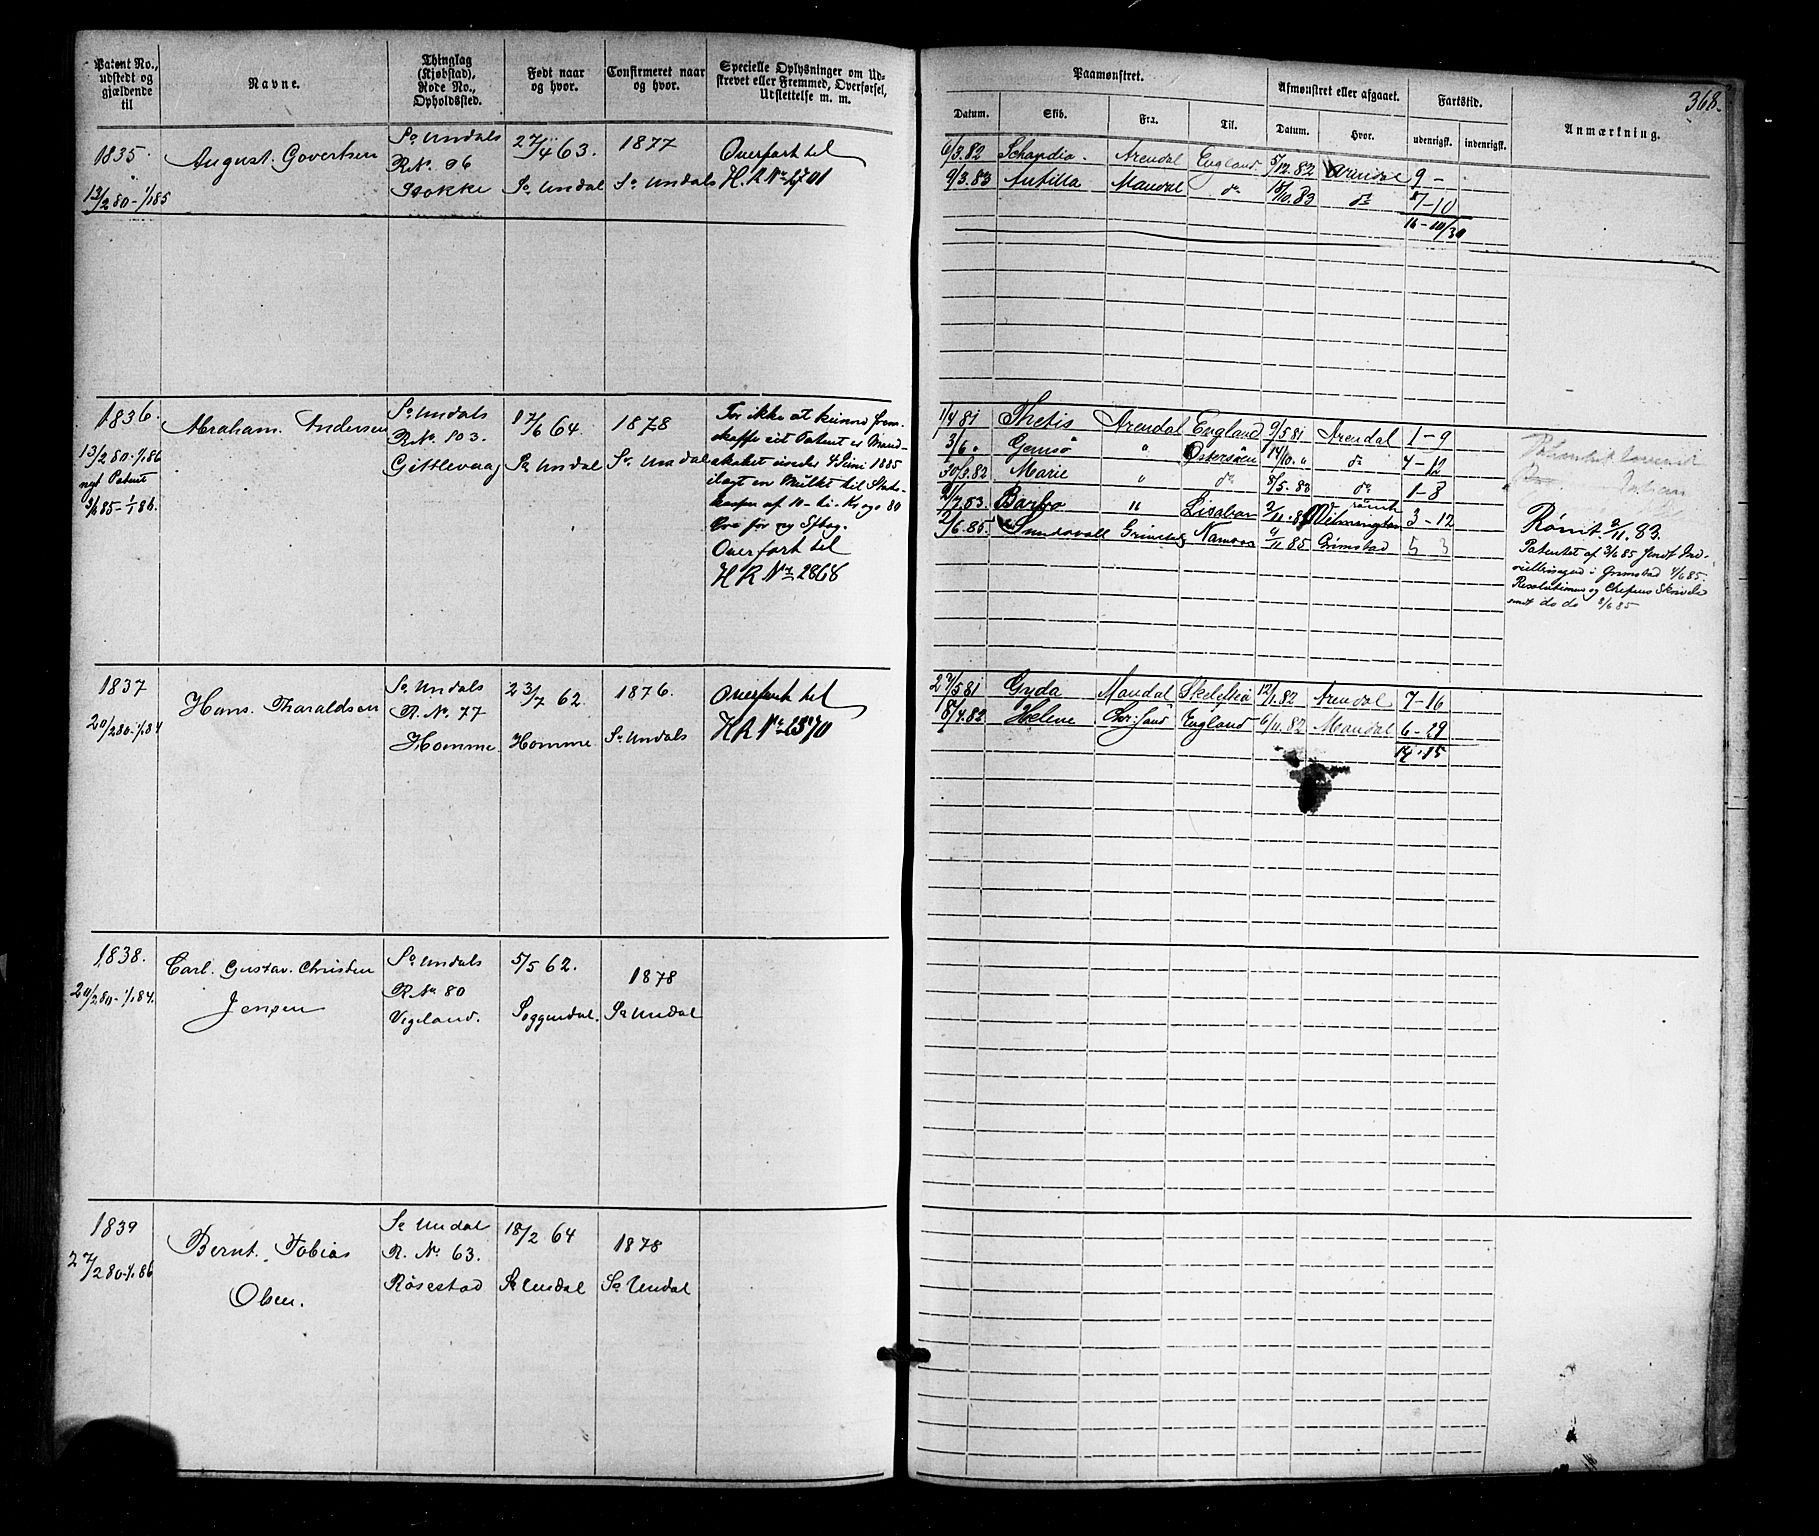 368.
Patent No., udstedt og gjældende til
Navne.
Thinglag (Kjøbstad), Rode No., Opholdssted.
Født naar og hvor.
Confirmeret naar og hvor.
Specielle Oplysninger om Udstrevet eller Fremmed, Overførsel, Udslettelse m. m.
Paamønstret.
Afmønstret eller afgaaet.
Fartstid.
Anmærkning.
Datum. Skib. Fra. Til. Datum. Hvor. udenrigsk. indenrigsk.
1835. August. Govertsen Sø Undals 27/4 63. 1877 Overført til
R.No. 96
Stokke Sø Undal Sø Undals H.R. No 2701
13/2 80 - 1/1 85
6/3.82 Schandia. Arendal England 5/12.82 Arendal 9 -
9/3.83 Antilla Mandal do 18/10.83 do 7-10
16-10/30
1836. Abraham. Andersen Sø Undals 17/6 64 1878
R.No. 103.
Gittlevaag Sø Undal Sø Undal
13/2 80 - 1/1 86
nyt Patent
3/6 85 - 1/1 86.
For ikke at kunne frem-
skaffe sit Patent er Mand-
skabet under 4 Juni 1885
ilagt en Mulkt til Stats-
kassen af 10 - ti - Kr og 80
Øre for
Overført til
H R No 2868
1/4 81 Thetis Arendal England 9/5 81 Arendal 1-9
3/6 " Gemsö " Østersøen 14/10. " do 4-12
30/3.82 Marie " do 8/5.82 do 1-8
Barbro " Lissabon Wilmington 3-12
rømt
2/6.85. Sundsvall Grimstad Namsos /11 85 Grimstad 5 3
Rømt 2/11.83.
Patentet af 3/6 85 sendt Ind-
rulleringen i Grimstad 4/6 85.
Resolutionen og Chefens Skrivelse
sendt do do 8/6 85
1837 Hans. Tharaldsen Sø Undals 23/7 62. 1876. Overført til
R. No. 77
Homme Homme Sø Undals H.R. No 2370
20/2 80 - 1/1 84
27/5 81 Gyda Mandal Skelefteå 12/1.82 Arendal 7-16
18/4.82 Helene Chr:sand England 6/11.82 Mandal 6-29
14-15
1838. Carl. Gustav. Christen Sø Undals 5/5 62. 1878
Jensen R. No 80
Vigeland. Soggendal. Sø Undal
20/2 80 - 1/1 84.
1839 Bernt. Tobias Sø Undal 18/2 64 1878
Olsen. R. No 63.
Røsestad Sø Undal Sø Undal
27/2 80 - 1/1 86